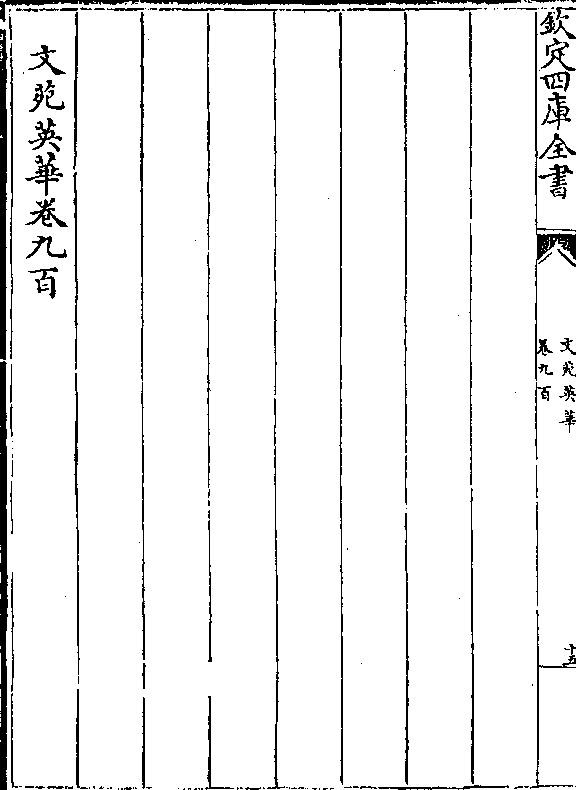 欽定四庫全書
文苑英華
卷九百
十五
文苑英華卷九百